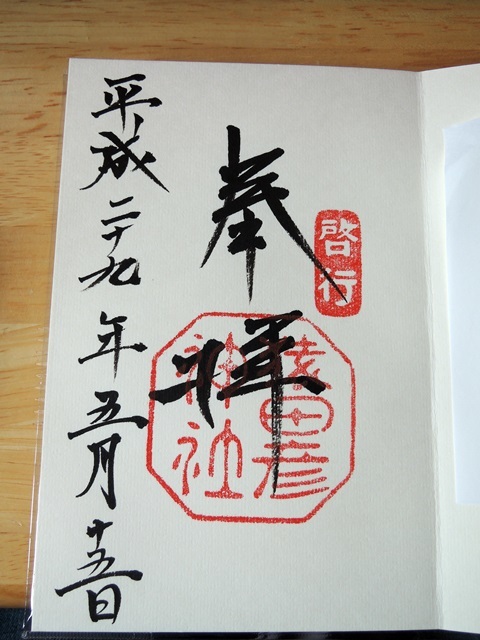 啓行
奉拝
猿田彦
神社
平成二十九年五月十五日